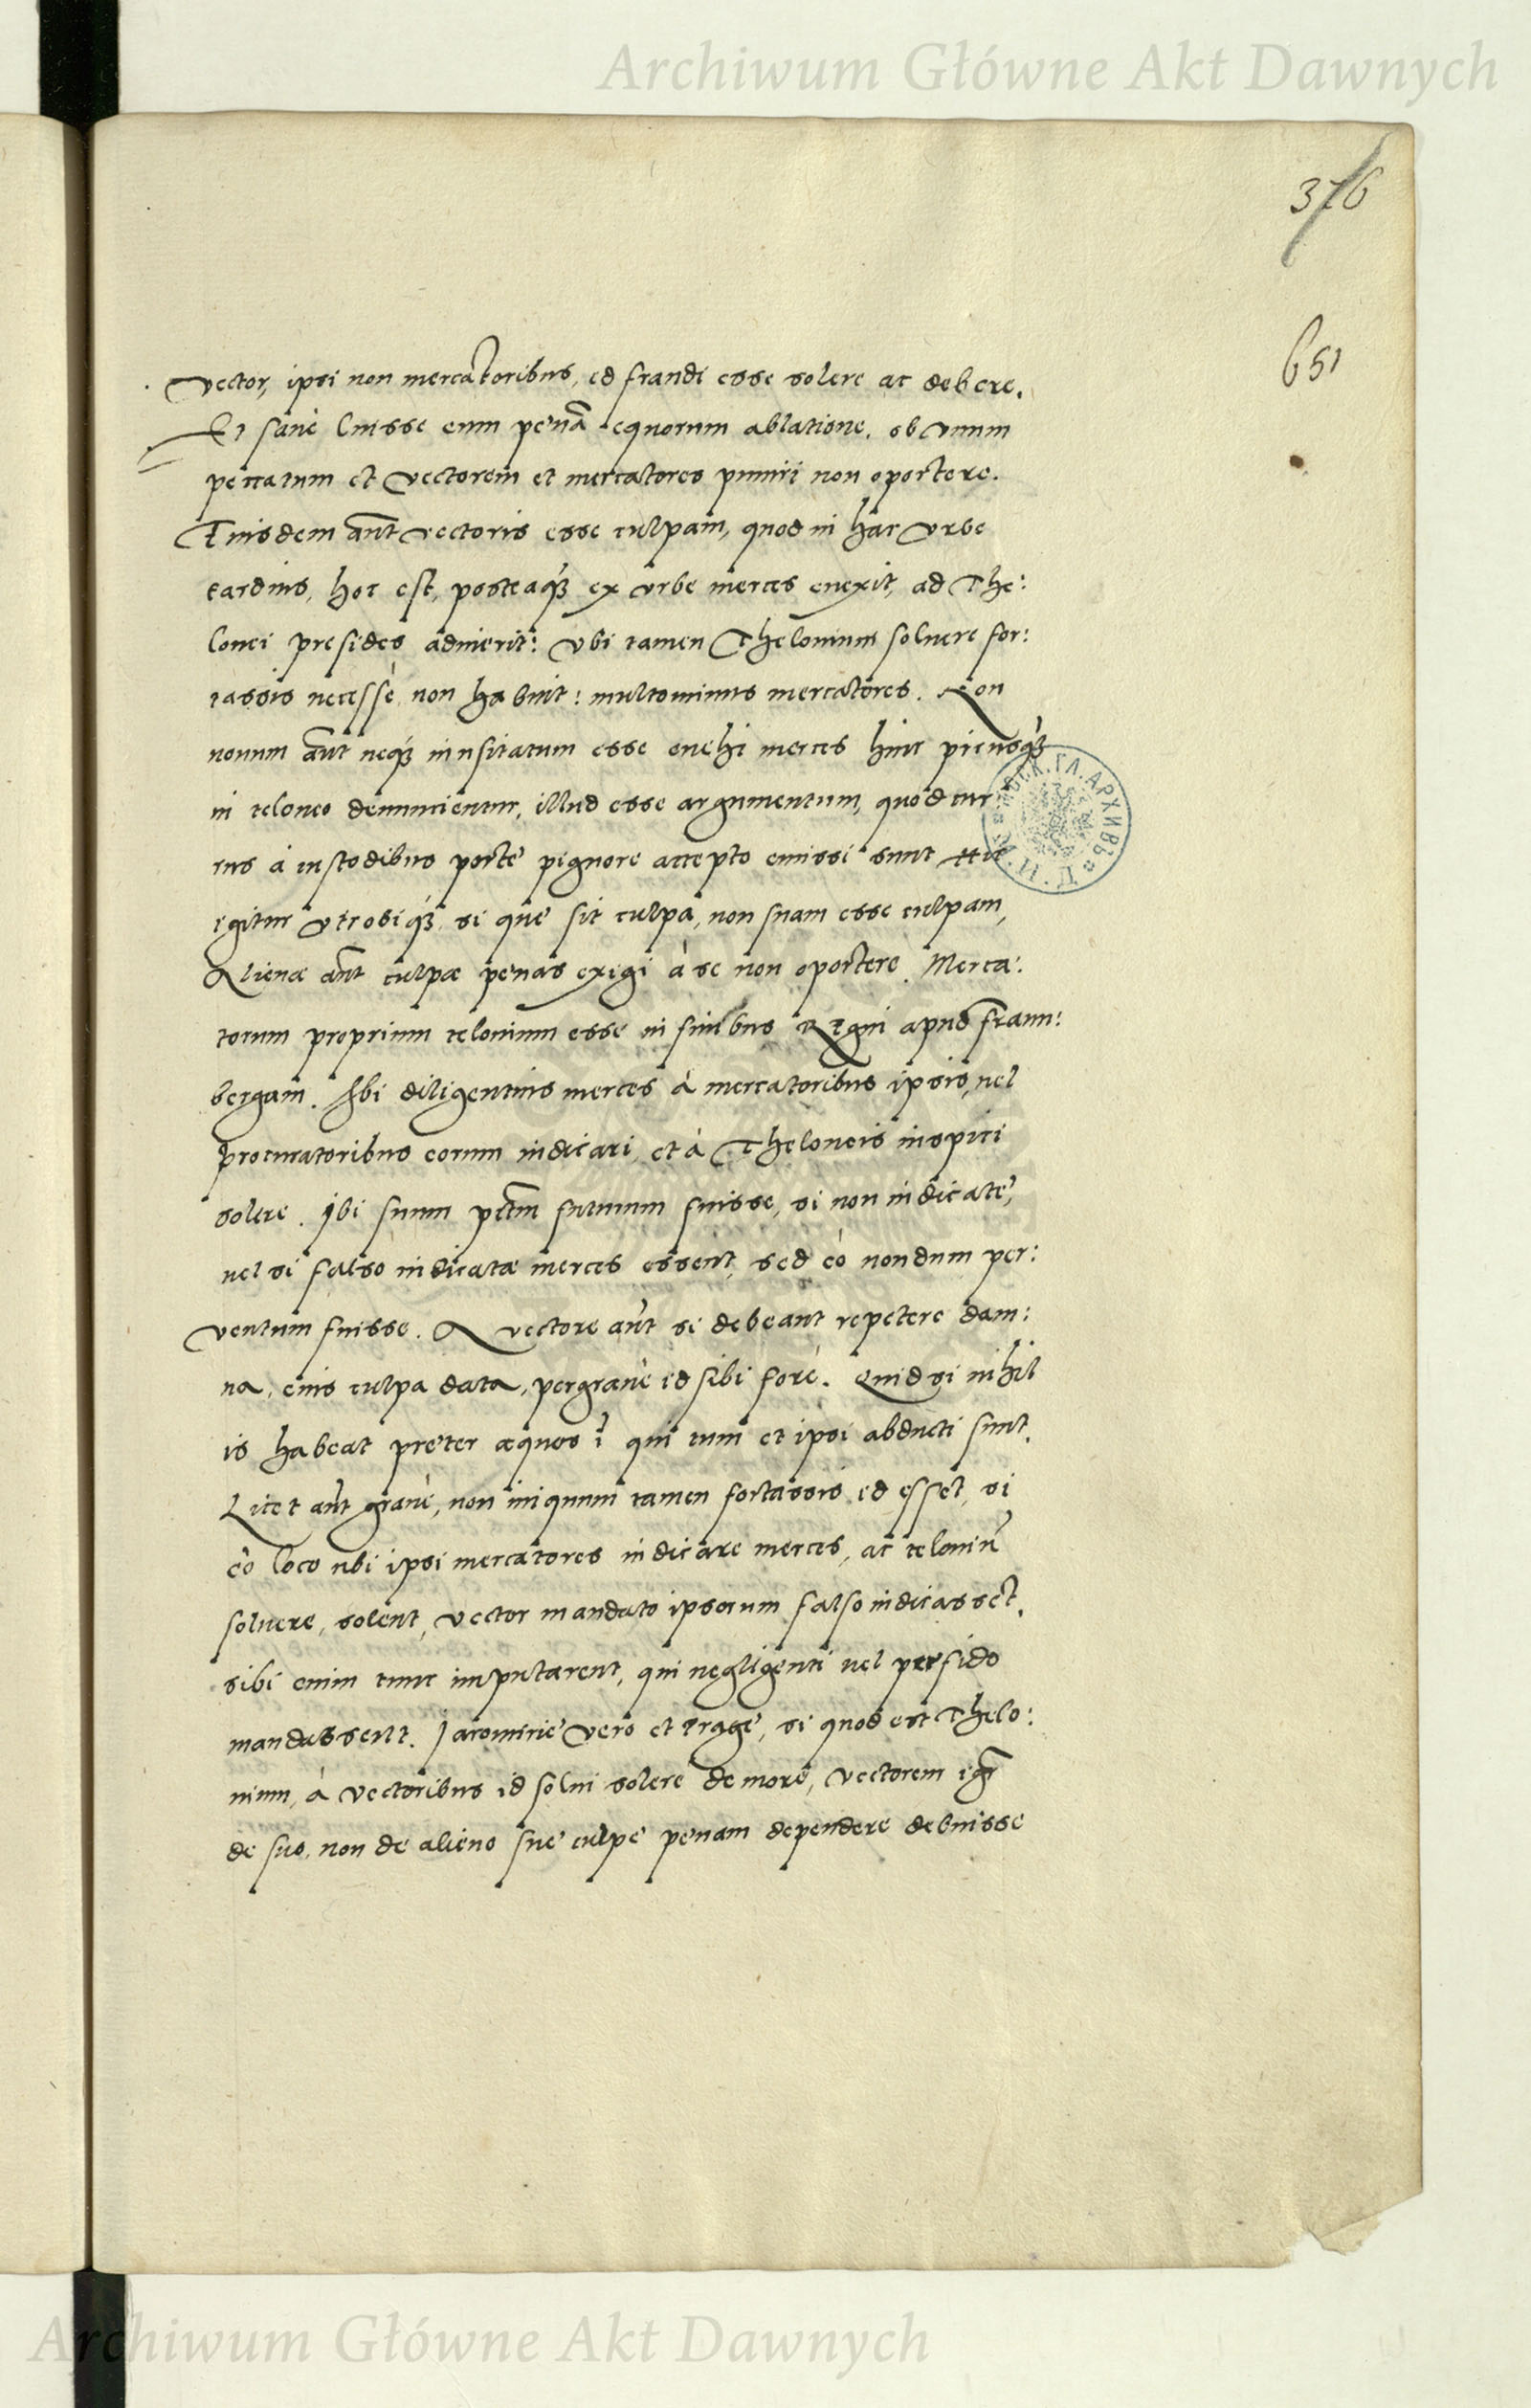 Archiwum Główne Akt Dawnych
376
651
Vector, ipsi non mercatoribus, id fraudi esse solere ac debere.
Et sanè luisse eum penã equorum ablatione. ob vnum
peccatum et vectorem et mercatores puniri non oportere.
Eiusdem aut vectoris esse culpam, quod in hac vrbe
tardius, hoc est, posteaq3 ex vrbe merces euexit, ad The:
lonei presides adierit: Vbi tamen Thelonium soluere for:
tassis necesse non habuit: multominus mercatores. Non
nouum aut neq3 inusitatum esse euehi merces hinc priusq3
in teloneo denuncientur, illud esse argumentum, quòd cur
rus à custodibus porte pignore accepto emissi sunt Hic
igitur vtrobiq3 si que sit culpa, non suam esse culpam,
Alienæ aut culpæ penas exigi à se non oportere. Merca:
torum proprium telonium esse in finibus Regni apud Fraun:
bergam. Ibi diligentius merces à mercatoribus ipsis, uel
procuratoribus eorum indicari, et à Theloneis inspici
solere. Ibi suum pctm futurum fuisse, si non indicate,
uel si falso indicatæ merces essent, sed eò nondum per:
ventum fuisse. A vectore aut si debeant repetere dam:
na, eius culpa data, pergraue id sibi fore. Quid si nihil
is habeat preter æquos qui tum et ipsi abducti sunt.
Licet aut graue, non iniquum tamen fortassis id esset, si
eo loco ubi ipsi mercatores indicare merces, ac teloniũ
soluere, solent, vector mandato ipsorum falso indicasset.
sibi enim tunc imputarent, qui negligenti uel perfido
mandassent. Jaromirie vero et Prage, si quod est Thelo:
nium, à vectoribus id solui solere de more, vectorem igr
de suo, non de alieno sue culpe penam dependere debuisse
Archiwum Główne Akt Dawnych